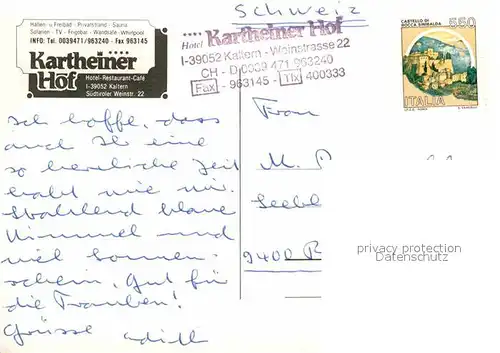 Hallen- u Freibad - Privatstrand - Sauna
Solarien - TV - Frigobar - Wandsafe - Whirlpool
INFO: Tel. 0039471/963240 - Fax 963145
Kartheiner Hof
Hotel-Restaurant-Café
I-39052 Kaltern
Südtiroler Weinstr. 22
Schweiz
Hotel Kartheiner Hof
I-39052 Kaltern - Weinstrasse 22
CH - D 0039 471 963240
Fax - 963145 - Tlx 400333
CASTELLO DI
ROCCA SINIBALDA
550
ITALIA
Ich hoffe, dass
auch Sie eine
so herrliche Zeit
habt wie wir.
Strahlend blaue
Himmel und
viel Sonnen-
schein, Gut für
die Trauben!
Grüsse
Frau
M.
9400 R
privacy protection
VisualDetails.com